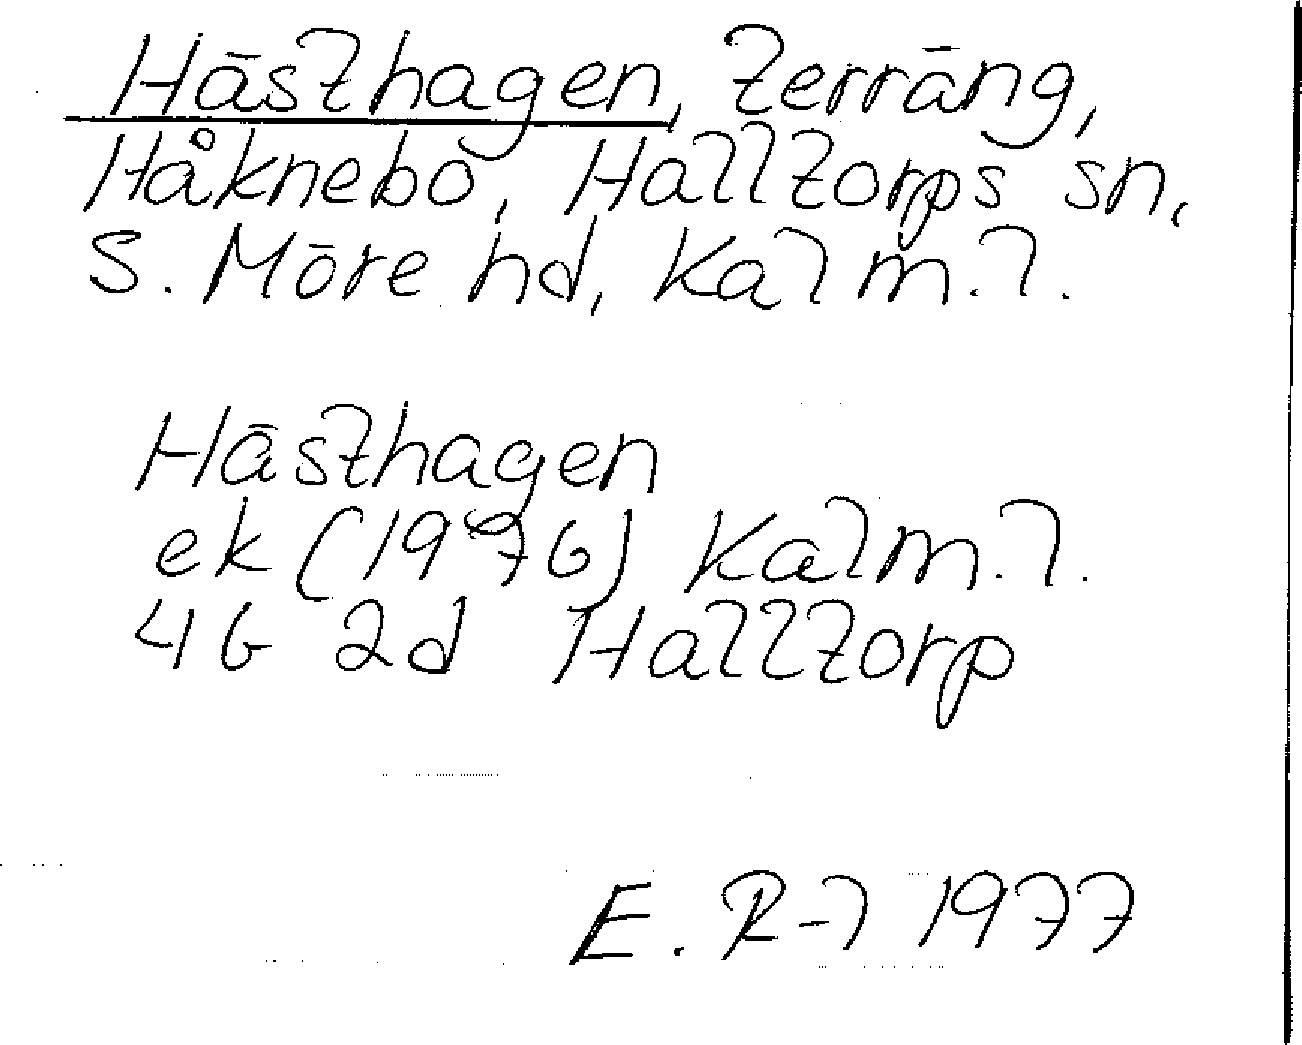 Hästhagen, terräng,
Håknebo, Halltorps sn,
S. Möre hd, Kalm. l.
Hästhagen
ek (1976) Kalm. l.
4G 2d Halltorp
E. R-l 1977